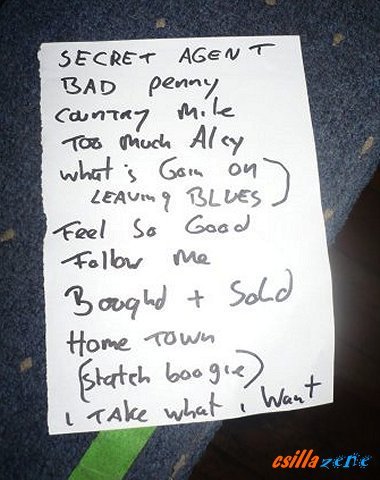 SECRET AGENT
BAD penny
COUNTRY Mile
Too Much Alcy
What's Goin on
LEAVING BLUES)
Feel So Good
Follow Me
Bought + Sold
Home TOWN
(Scratch boogie)
I TAKE what i Want
csillazene